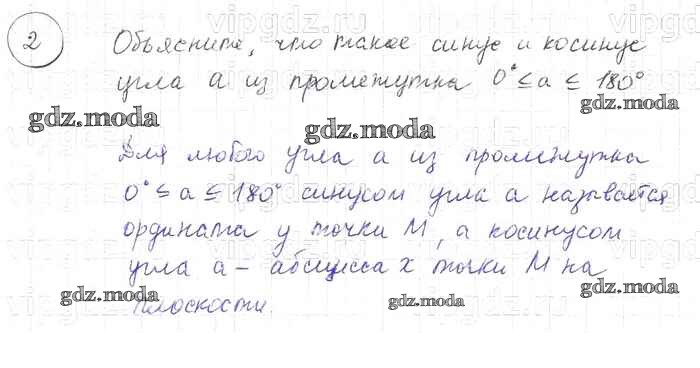 vipgdz.ru vipgdz.ru
2 Объясните, что такое синус и косинус
угла а из промежутка 0° ≤ а ≤ 180°
gdz.moda
gdz.moda gdz.moda
Для любого угла а из промежутка
0° ≤ а ≤ 180° синусом угла а называется
ордината у точки М, а косинусом
угла а – абсцисса х точки М на
gdz.moda gdz.moda gdz.moda
плоскости.